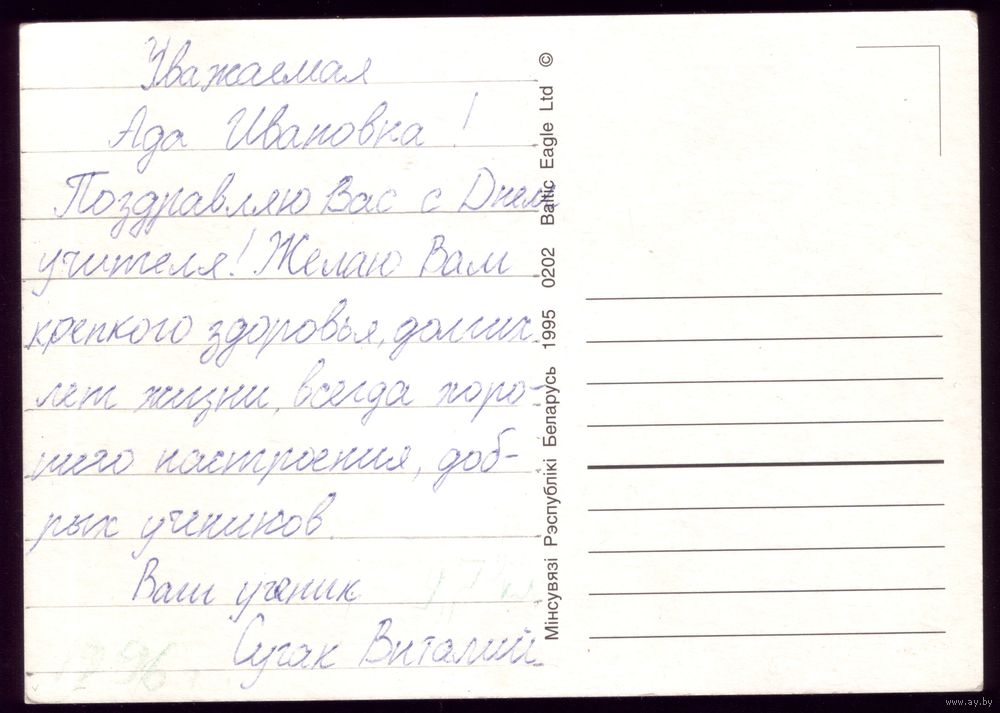 Уважаемая
Ада Ивановна!
Поздравляю Вас с Днем
учителя! Желаю Вам
крепкого здоровья, долгих
лет жизни, всегда хоро-
шего настроения, доб-
рых учеников.
Ваш ученик
Сугак Виталий
Мінсувязі Рэспублікі Беларусь 1995 0202 Baltic Eagle Ltd ©
www.ay.by